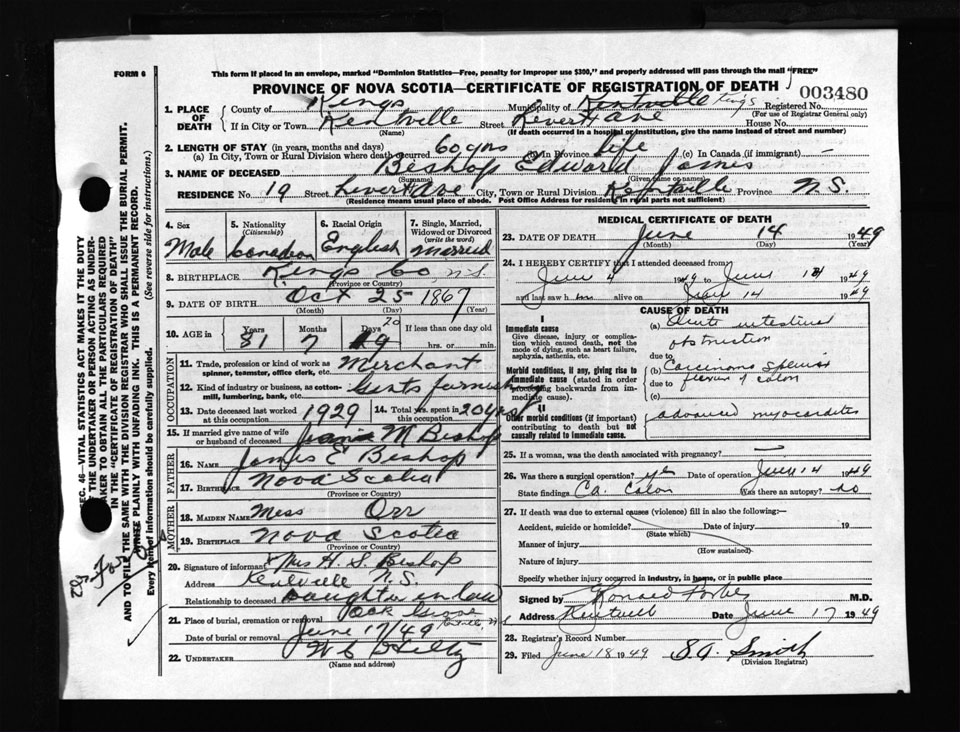 FORM 6
This form if placed in an envelope, marked "Dominion Statistics—Free, penalty for improper use $300," and properly addressed will pass through the mail "FREE"
PROVINCE OF NOVA SCOTIA—CERTIFICATE OF REGISTRATION OF DEATH
003480
1. PLACE OF DEATH
County of Kings Municipality of Kentville Kings Registered No.
(For use of Registrar General only)
If in City or Town Kentville Street Ave House No.
(Name) (If death occurred in a hospital or institution, give the name instead of street and number)
2. LENGTH OF STAY (in years, months and days)
(a) In City, Town or Rural Division where death occurred 60 yrs (b) In Province life (c) In Canada (if immigrant) —
3. NAME OF DECEASED Bishop Edward James
(Surname) (Given name or names)
RESIDENCE No. 19 Street Ave City, Town or Rural Division Kentville Province N.S.
(Residence means usual place of abode. Post Office Address for residents in rural parts not sufficient)
4. Sex
Male
5. Nationality
(Citizenship)
Canadian
6. Racial Origin
English
7. Single, Married, Widowed or Divorced
(write the word)
Married
8. BIRTHPLACE Kings Co N.S
(Province or Country)
9. DATE OF BIRTH Oct 25 1867
(Month) (Day) (Year)
10. AGE in
Years Months Days If less than one day old
81 7 20 hrs. or min.
OCCUPATION
11. Trade, profession or kind of work as spinner, teamster, office clerk, etc. Merchant
12. Kind of industry or business, as cotton-mill, lumbering, bank, etc. Gents furnishing
13. Date deceased last worked at this occupation 1929
14. Total yrs. spent in this occupation 20 yrs
15. If married give name of wife or husband of deceased M Bishop
FATHER
16. NAME James E Bishop
17. BIRTHPLACE Nova Scotia
(Province or Country)
MOTHER
18. MAIDEN NAME Miss Orr
19. BIRTHPLACE Nova Scotia
(Province or Country)
20. Signature of informant Mrs H. S. Bishop
Address Kentville N.S.
Relationship to deceased Daughter in law
21. Place of burial, cremation or removal Oak Grove Kentville N.S
Date of burial or removal June 17/49
22. UNDERTAKER W C
(Name and address)
MEDICAL CERTIFICATE OF DEATH
23. DATE OF DEATH June 14 1949
(Month) (Day) (Year)
24. I HEREBY CERTIFY that I attended deceased from
June 4 1949 to June 14 1949
and last saw him alive on June 14 1949
CAUSE OF DEATH
I
Immediate cause
Give disease, injury or complication which caused death, not the mode of dying, such as heart failure, asphyxia, asthenia, etc.
(a) Acute intestinal obstruction
due to
Morbid conditions, if any, giving rise to immediate cause (stated in order proceeding backwards from immediate cause).
(b) Carcinoma Splenic flexure of colon
due to
(c)
II
Other morbid conditions (if important) contributing to death but not causally related to immediate cause.
advanced myocarditis
25. If a woman, was the death associated with pregnancy?
26. Was there a surgical operation? yes Date of operation June 14 1949
State findings Ca. Colon Was there an autopsy? no
27. If death was due to external causes (violence) fill in also the following:—
Accident, suicide or homicide? Date of injury 19
(State which)
Manner of injury
(How sustained)
Nature of injury
Specify whether injury occurred in industry, in home, or in public place
Signed by Forbes M.D.
Address Kentville Date June 17 1949
28. Registrar's Record Number
29. Filed June 18 1949 Smith
(Division Registrar)
SEC. 46—VITAL STATISTICS ACT MAKES IT THE DUTY
OF THE UNDERTAKER OR PERSON ACTING AS UNDERTAKER TO OBTAIN ALL THE PARTICULARS REQUIRED
IN THE "CERTIFICATE OF REGISTRATION OF DEATH"
AND TO FILE THE SAME WITH THE DIVISION REGISTRAR WHO SHALL ISSUE THE BURIAL PERMIT.
WRITE PLAINLY WITH UNFADING INK. THIS IS A PERMANENT RECORD.
Every item of information should be carefully supplied. (See reverse side for instructions.)